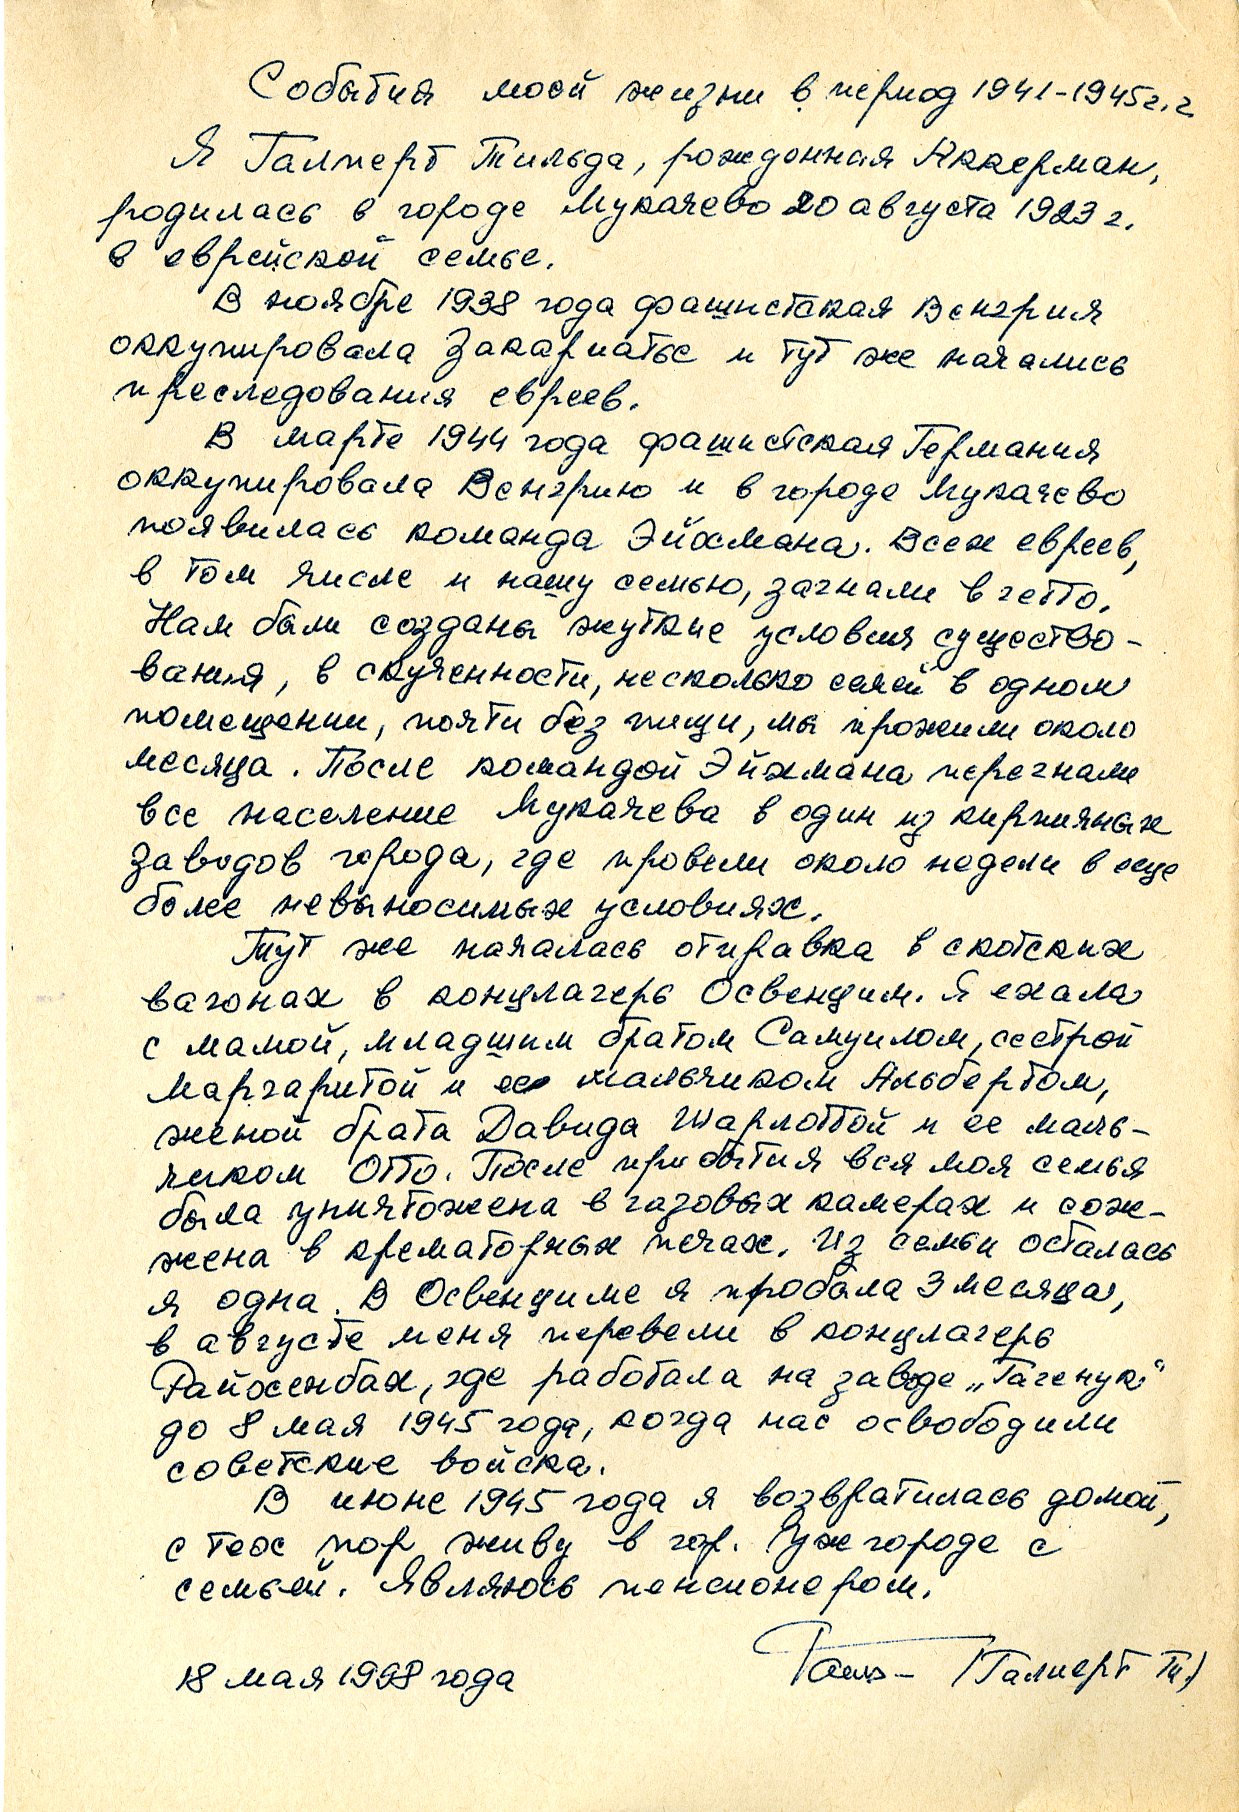 События моей жизни в период 1941-1945 г.г.
Я Галперт Тильда, рожденная Аккерман,
родилась в городе Мукачево 20 августа 1923 г.
в еврейской семье.
В ноябре 1938 года фашистская Венгрия
оккупировала Закарпатье и тут же начались
преследования евреев.
В марте 1944 года фашистская Германия
оккупировала Венгрию и в городе Мукачево
появилась команда Эйхмана. Всех евреев,
в том числе и нашу семью, загнали в гетто.
Нам были созданы жуткие условия существо-
вания, в скученности, несколько семей в одном
помещении, почти без пищи, мы прожили около
месяца. После командой Эйхмана перегнали
все население Мукачева в один из кирпичных
заводов города, где провели около недели в еще
более невыносимых условиях.
Тут же началась отправка в скотских
вагонах в концлагерь Освенцим. Я ехала
с мамой, младшим братом Самуилом, сестрой
Маргаритой и ее мальчиком Альбертом,
женой брата Давида Шарлоттой и ее маль-
чиком Отто. После прибытия вся моя семья
была уничтожена в газовых камерах и сож-
жена в крематорных печах. Из семьи осталась
я одна. В Освенциме я пробыла 3 месяца,
в августе меня перевели в концлагерь
Райхенбах, где работала на заводе „Гагенук“
до 8 мая 1945 года, когда нас освободили
советские войска.
В июне 1945 года я возвратилась домой,
с тех пор живу в гор. Ужгороде с
семьей. Являюсь пенсионером.
18 мая 1998 года Галп- (Галперт Ти.)